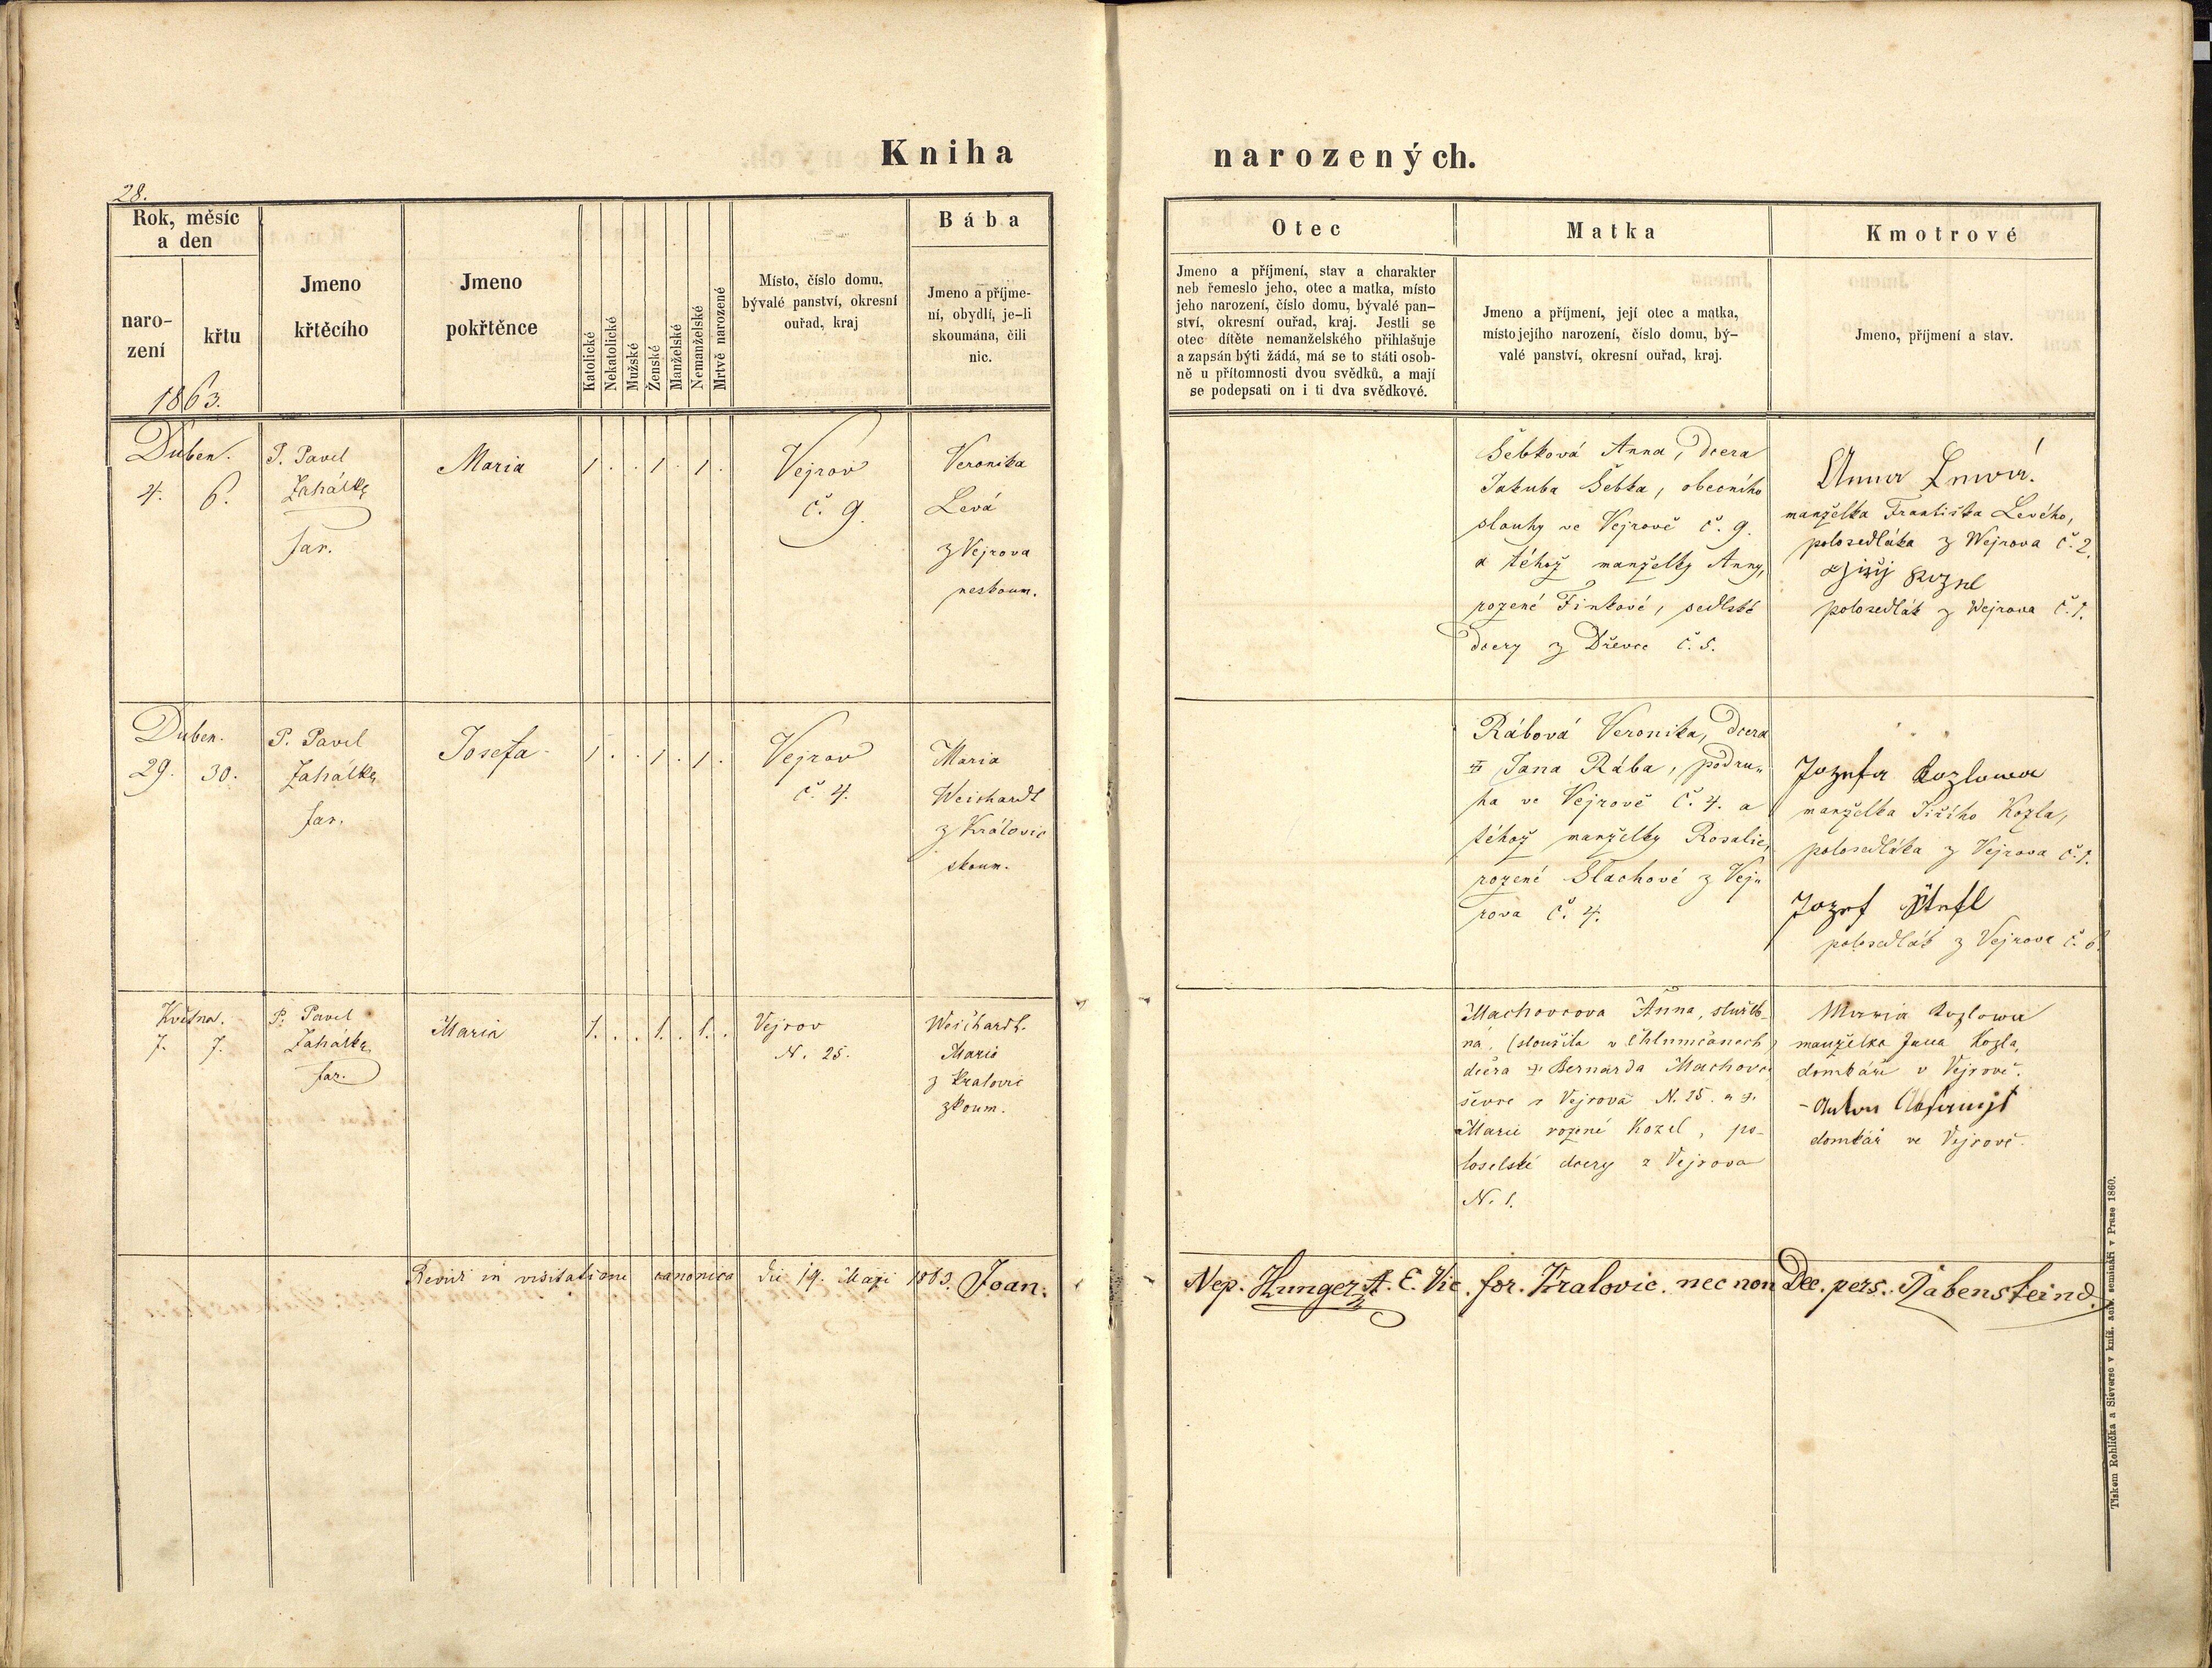 Kniha narozených.
28.
Rok, měsíc
a den
naro-
zení
křtu
1863.
Jmeno
křtěcího
Jmeno
pokřtěnce
Katolické
Nekatolické
Mužské
Ženské
Manželské
Nemanželské
Mrtvě narozené
Místo, číslo domu,
bývalé panství, okresní
ouřad, kraj
Bába
Jmeno a příjme-
ní, obydlí, je-li
skoumána, čili
nic.
Otec
Jmeno a příjmení, stav a charakter
neb řemeslo jeho, otec a matka, místo
jeho narození, číslo domu, bývalé pan-
ství, okresní ouřad, kraj. Jestli se
otec dítěte nemanželského přihlašuje
a zapsán býti žádá, má se to státi osob-
ně u přítomnosti dvou svědků, a mají
se podepsati on i ti dva svědkové.
Matka
Jmeno a příjmení, její otec a matka,
místo jejího narození, číslo domu, bý-
valé panství, okresní ouřad, kraj.
Kmotrové
Jmeno, příjmení a stav.
Duben.
4. 6.
P. Pavel
Zahálka
far.
Maria
1 . . 1 . 1 .
Vejrov
č. 9.
Veronika
Levá
z Vejrova
neskoum.
Šebková Anna, dcera
Jakuba Šebka, obecního
slouhy ve Vejrově č. 9.
a téhož manželky Anny,
rozené Finkové, sedlské
dcery z Dřevce č. 5.
Anna Lewá.
manželka Františka Levého,
polosedláka z Wejrova č. 2.
Jiřý Kozel
polosedlák z Wejrova č. 1.
Duben.
29. 30.
P. Pavel
Zahálka
far.
Josefa
1 . . 1 . 1 .
Vejrov
č. 4.
Maria
Weichardt
z Královic
skoum.
Rábová Veronika, dcera
Jana Rába, podru„
ha ve Vejrově č. 4. a
téhož manželky Rosalie,
rozené Slachové z Vej„
rova č. 4.
Jozefa Kozlowa
manželka Jiřího Kozla,
polosedláka z Vejrova č. 1.
Jozef Štefl
polosedlák z Vejrova č. 6.
Května.
7. 7.
P. Pavel
Zahálka
far.
Maria
1. . . 1. . 1. .
Vejrov
N. 25.
Weichardt
Marie
z Kralovic
zkoum.
Machovcova Anna, služeb-
ná, (sloužila v Chlumčanech)
dcera Bernarda Machovce
ševce z Vejrova N. 25. a
Marie rozené Kozel, po-
loselské dcery z Vejrova
N. 1.
Maria Kozlowa
manželka Jana Kozla,
domkáře v Vejrově.
Anton
domkář ve Vejrově.
Revidi in visitatione canonica die 19. Maji 1863. Joan. Nep. Hunger A. E. Vic. for. Kralovic. nec non Dec. pers. Rabensteind.
Tiskem Rohlíčka a Sieverse v kníž. arib. semináři v Praze 1860.